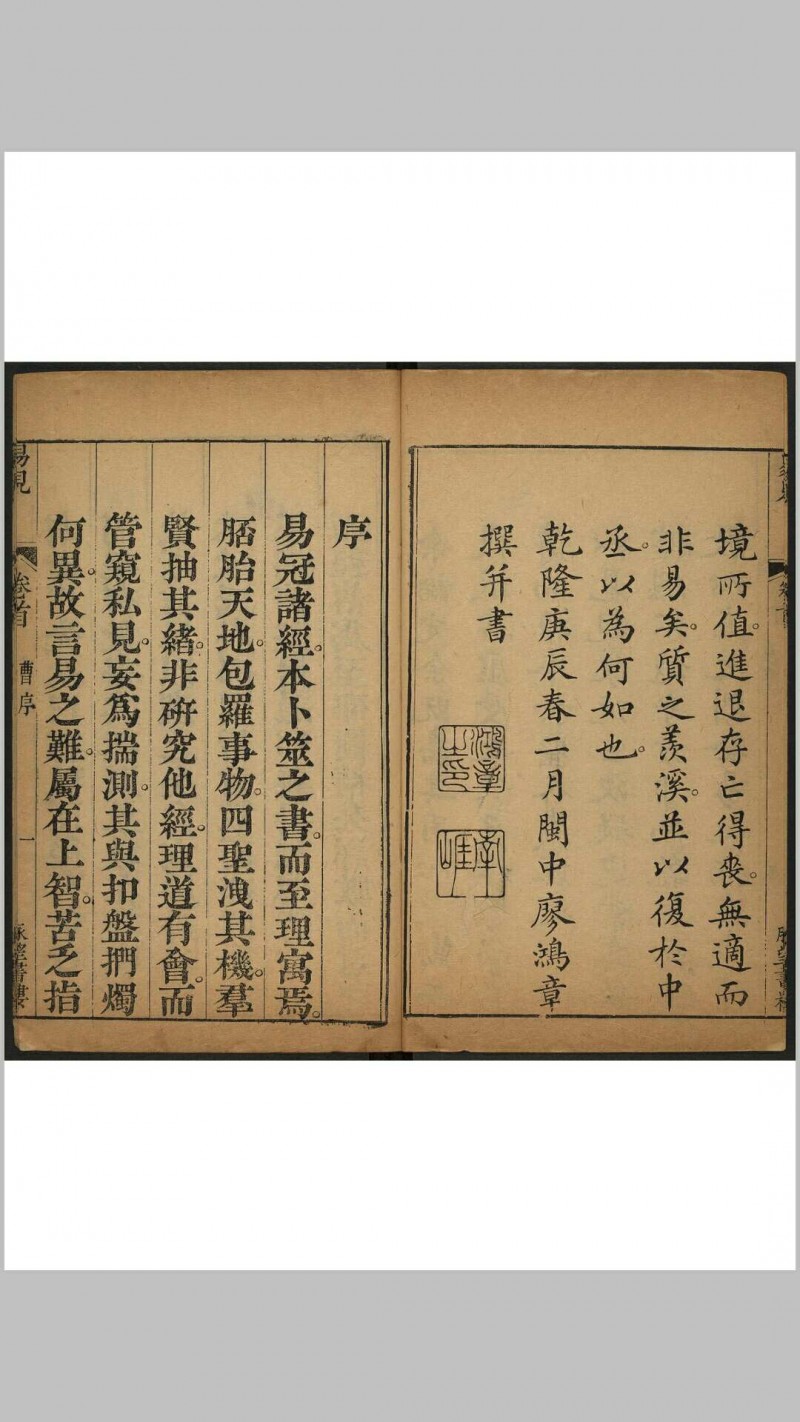 境所值。進退存亡得喪。無適而
非易矣。質之羨溪。並以復於中
丞。以為何如也。
乾隆庚辰春二月閩中廖鴻章
撰并書
鴻章之印
南崖
序
易冠諸經。本卜筮之書。而至理寓焉。
胚胎天地。包羅事物。四聖洩其機。羣
賢抽其緒。非研究他經。理道有會。而
管窺私見。妄爲揣測。其與扣盤捫燭
何異。故言易之難。屬在上智。苦乏指
易見
卷首
曹序
一